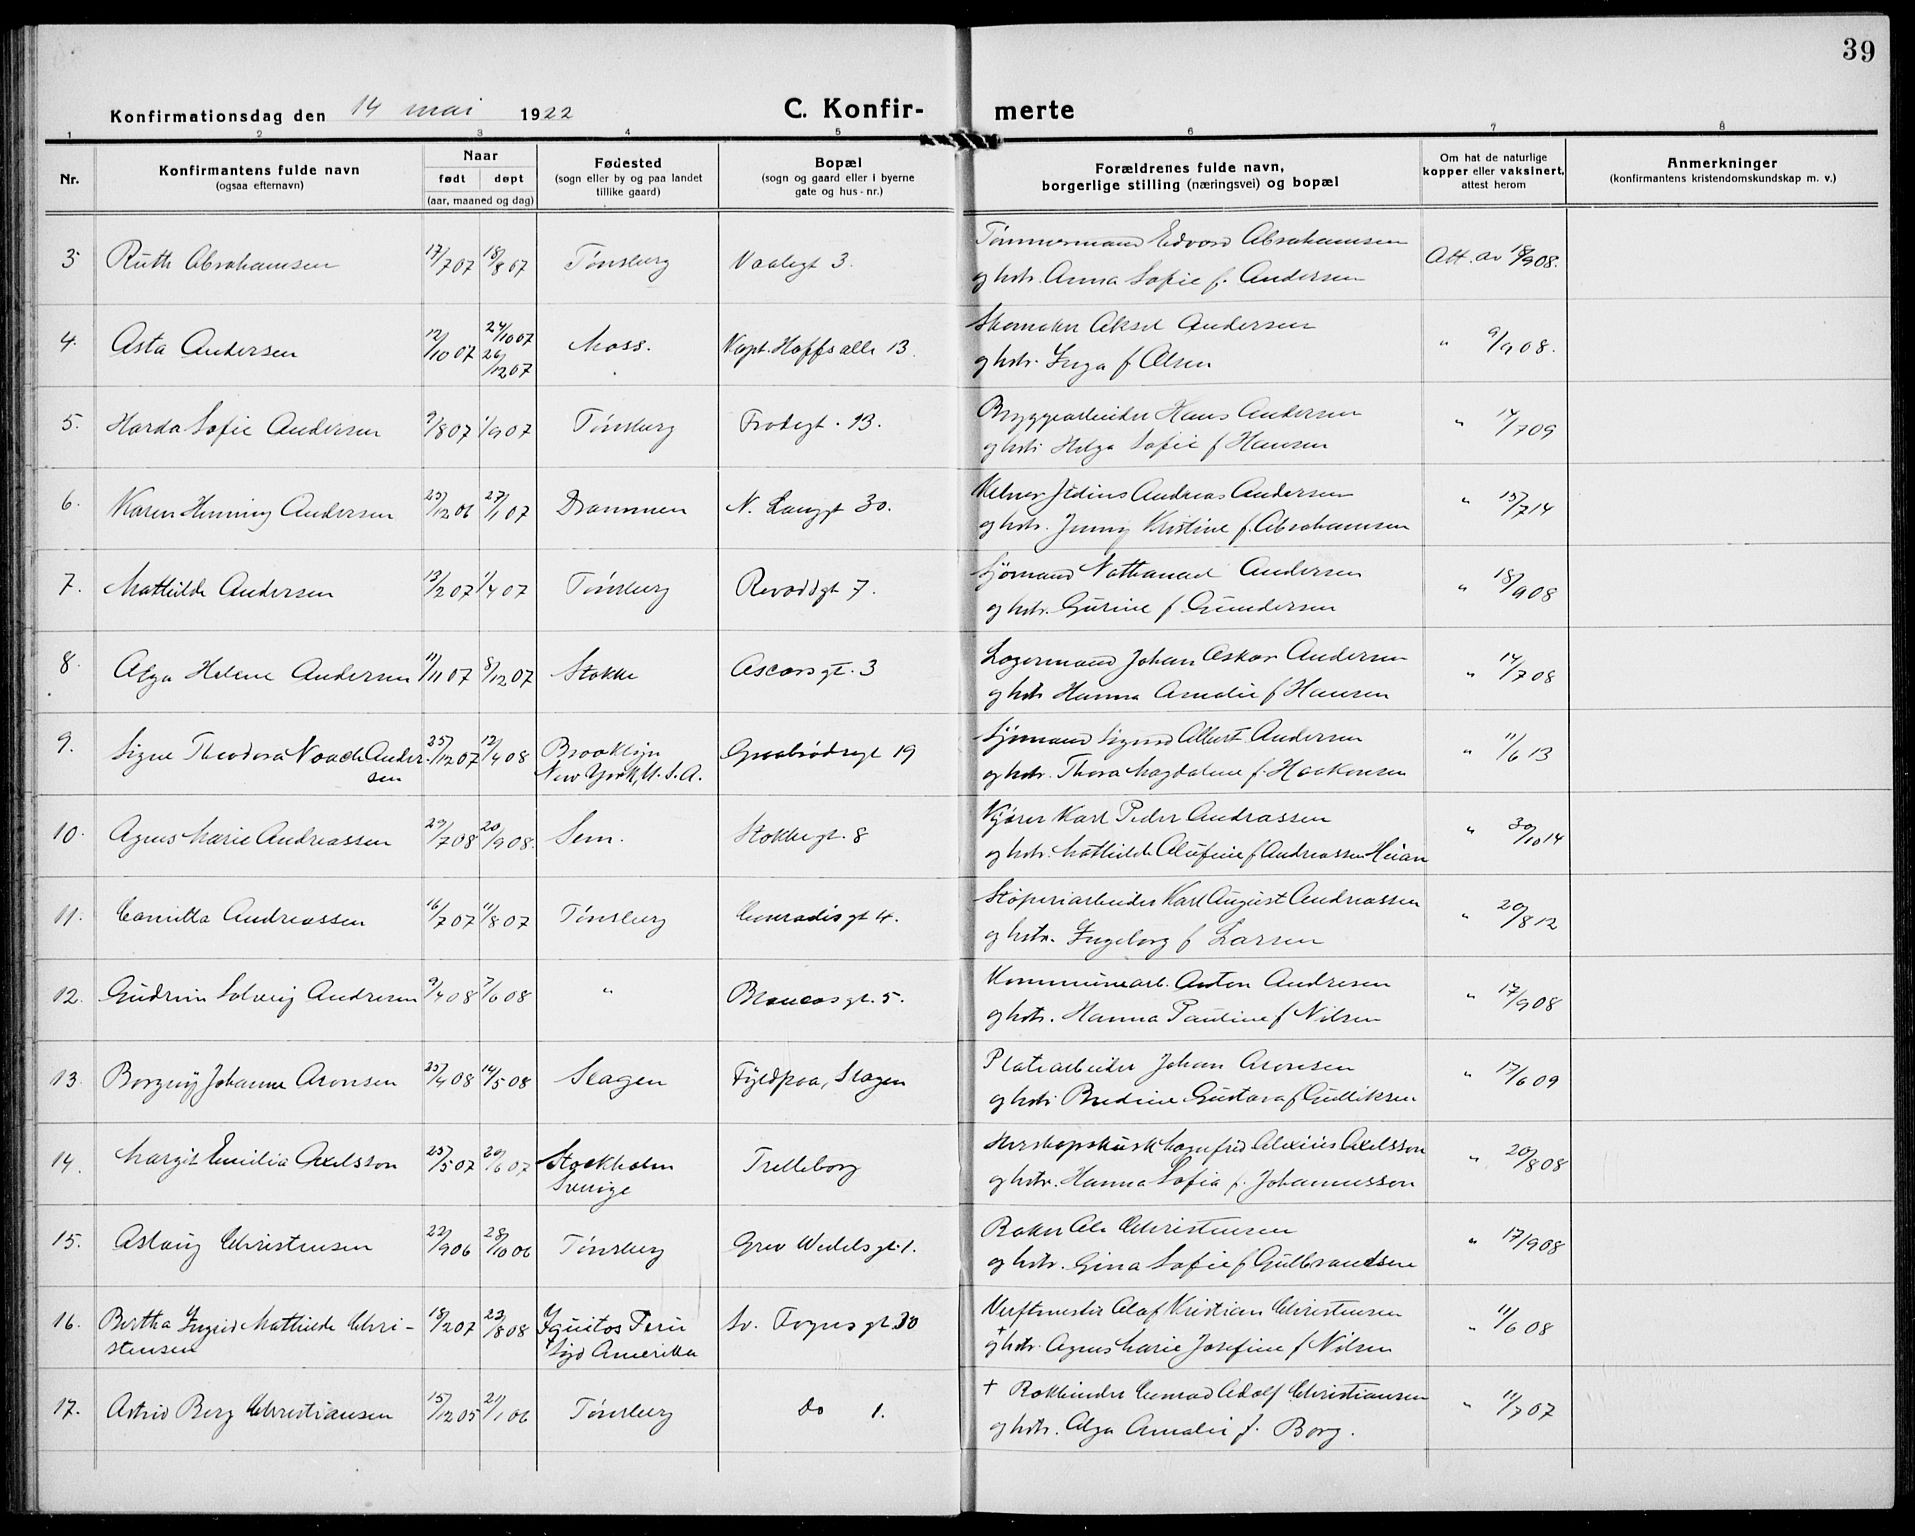 39
Konfirmationsdag den 14 mai 1922 C. Konfir- merte
1 2 3 4 5 6 7 8
Nr. Konfirmantens fulde navn (ogsaa efternavn) Naar født døpt (aar, maaned og dag) Fødested (sogn eller by og paa landet tillike gaard) Bopæl (sogn og gaard eller i byerne gate og hus-nr.) Forældrenes fulde navn, borgerlige stilling (næringsvei) og bopæl Om hat de naturlige kopper eller vaksinert, attest herom Anmerkninger (konfirmantens kristendomskundskap m. v.)
3 Ruth Abrahamsen 17/7 07 18/8 07 Tønsberg Vaalegt 3. Tømmermand Edvard Abrahamsen Att. av 18/9 08.
og hstr. Anna Sofie f. Andersen
4. Asta Andersen 12/10 07 24/10 07 26/12 07 Moss. Kapt. Hoffs alle 13. Skomaker Aksel Andersen " 9/9 08.
og hstr. Inga f Olsen
5. Harda Sofie Andersen 9/8 07 1/9 07 Tønsberg Frodegt. 13. Bryggearbeider Hans Andersen " 14/7 09
og hstr Helga Sofie f Hansen
6. Karen Henning Andersen 23/12 06 27/1 07 Drammen N. Langgt 30. Kelner Andreas Andersen " 15/7 14
og hstr. Jenny Kristine f. Abrahamsen
7. Mathilde Andersen 13/2 07 1/4 07 Tønsberg 7. Sjømand Nathanael Andersen " 18/9 08
og hstr. Gurine f. Gundersen
8. Olga Helene Andersen 11/11 07 8/12 07 Stokke Ascersgt. 3 Lagermand Johan Oskar Andersen " 14/7 08
og hstr Hanna Amalie f Hansen
9. Signe Theodora Noach Ander- 25/12 07 12/4 08 Brooklyn Graabrødregt 19 Sjømand Sigurd Albert Andersen " 11/6 13
sen New York, U. S. A. og hstr. Thora Magdalene f. Haakonsen
10. Agnes Marie Andreassen 29/7 08 20/9 08. Sem. Stokkegt. 8 Kjører Karl Peder Andrassen " 30/10 14
og hstr. Mathilde Olufine f Andreassen Heian
11. Camilla Andreassen 16/7 07 11/8 07 Tønsberg Conradisgt 4. Støperiarbeider Karl August Andreassen " 20/8 12
og hstr. Ingeborg f Larsen
12. Gudrun Solveig Andresen 9/4 08 7/6 08 " Brancasgt. 5. Kommunearb. Anton Andresen " 17/9 08
og hstr. Hanna Pauline f Nilsen
13. Borgny Johanne Aronsen 25/4 08 14/5 08 Slagen Fyldpaa, Slagen Platearbeider Johan Aronsen " 17/6 09
og hstr Bredine Gustava f Gulliksen
14. Margit Emilia Axelsson 25/5 07 20/6 07 Stockholm Trelleborg Herskapskusk Magnfred Alexius Axelsson " 20/8 08
Sverige og hstr. Hanna Sofia f. Johannesson
15. Aslaug Christensen 22/9 06 28/10 06 Tønsberg Grev Wedelsgt. 1. Baker Ole Christensen " 17/9 08
og hstr. Gina Sofie f Gulbrandsen
16. Bertha Ingrid Mathilde Chri- 18/2 07 23/8 08 Iquitos Peru Sv. Foynsgt 30 Verftmester Olaf Kristian Christensen " 11/6 08
stensen Syd Amerika + og hstr. Agnes Marie Josefine f Nilsen
17. Astrid Berg Christiansen 15/12 05 21/1 06 Tønsberg Do 1. + Bokbinder Conrad Adolf Christiansen " 11/7 07
og hstr. Olga Amalie f. Borg.